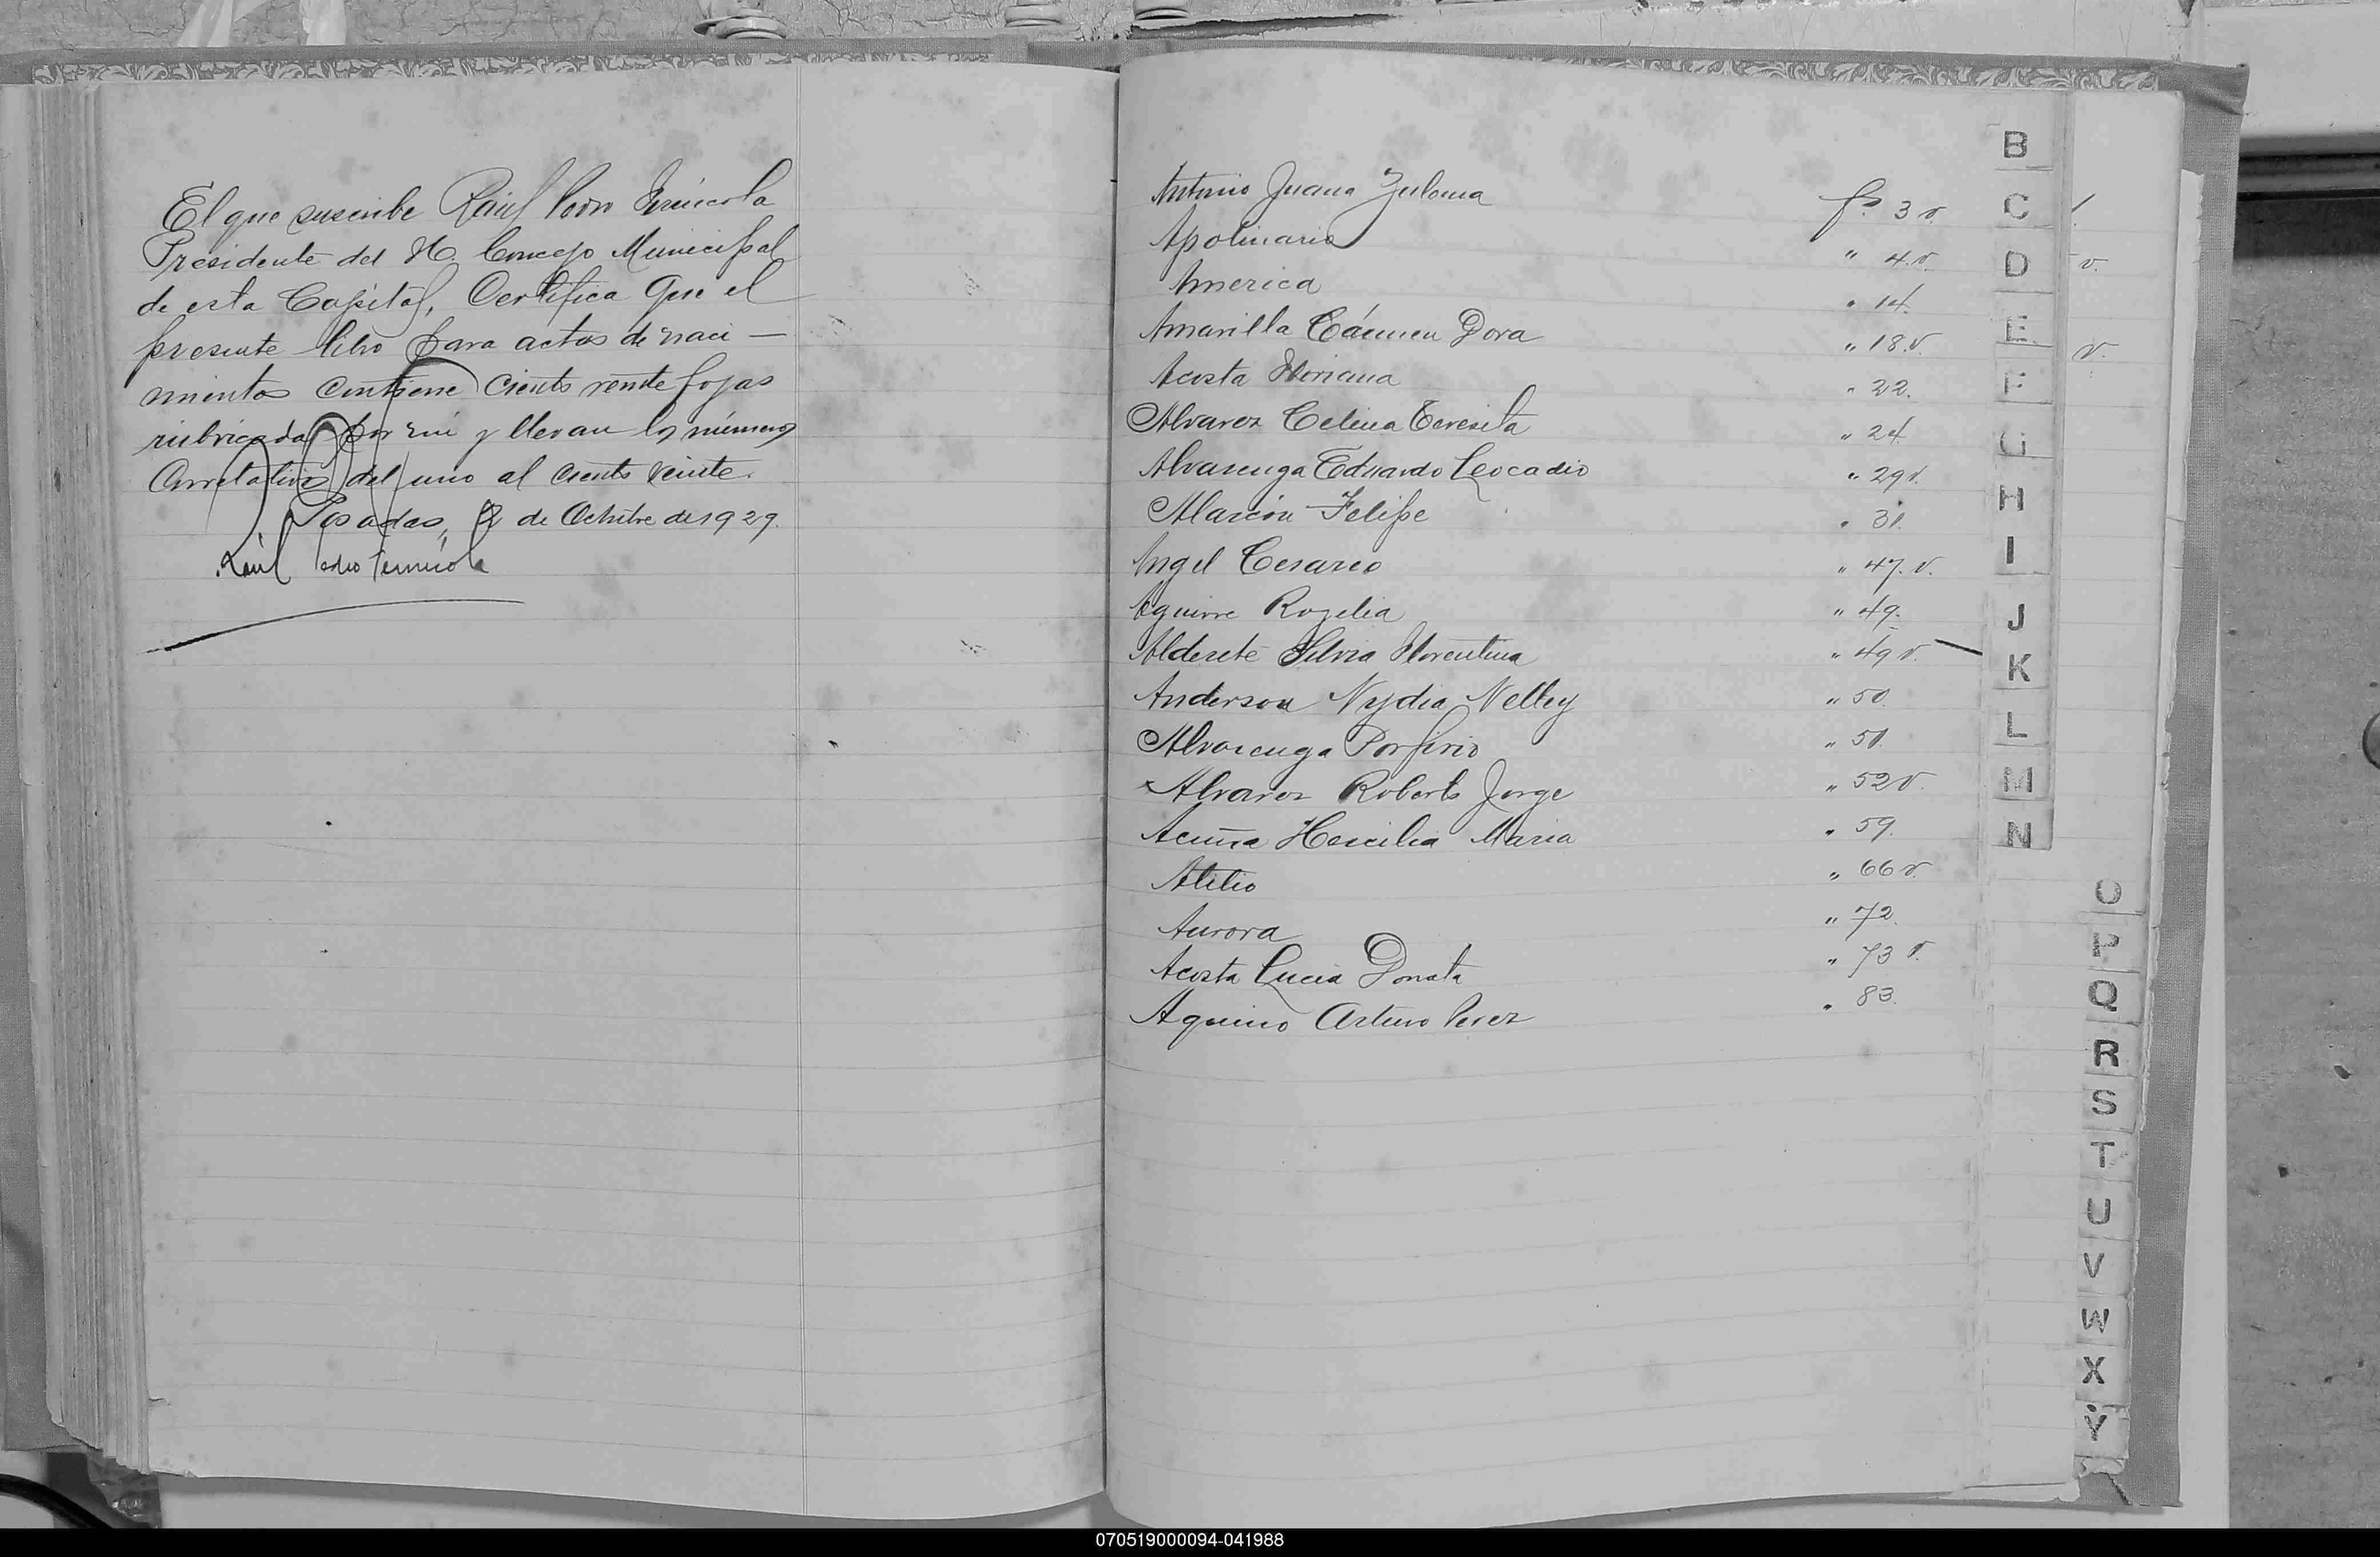 El que suscribe Raúl
Presidente del H. Concejo Municipal
de esta Capital, Certifica que el
presente libro para actos de naci —
mientos contiene ciento veinte fojas
rubricadas por mí y llevan los números
correlativos del uno al ciento veinte.
Posadas, 2 de Octubre de 1929.
Raúl
Antonio Juana Zuloma fs. 3 v.
Apolinario " 4. v.
America " 14.
Amarilla Cármen Dora " 18. v.
Acosta Floriana " 22.
Alvarez Celina Teresita " 24
Alvarenga Eduardo Leocadio " 29 v.
Alarcón Felipe " 31.
Angel Cesareo " 47. v.
Aguirre Rogelia " 49.
Alderete Silvia Florentina " 49 v.
Anderson Nydia Nelley " 50.
Alvarenga Porfirio " 51.
Alvarez Roberto Jorge " 52 v.
Acuña Hercilia Maria " 59.
Atilio " 66 v.
Aurora " 72.
Acosta Lucia Donata " 73 v.
Aquino Arturo Perez " 83.
v.
v.
B
C
D
E
F
G
H
I
J
K
L
M
N
O
P
Q
R
S
T
U
V
W
X
Y
070519000094-041988